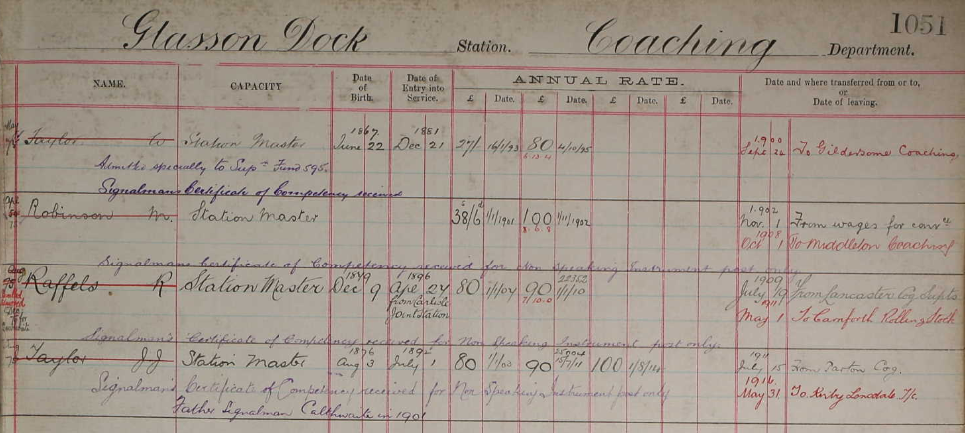 1051
Glasson Dock Station. Coaching Department.
NAME. CAPACITY Date of Birth. Date of Entry into Service. ANNUAL RATE. Date and where transferred from or to, or Date of leaving.
£ Date. £ Date. £ Date. £ Date.
1867 1881 1900
Taylor W Station Master June 22 Dec 21 27/ 16/1/93 80 4/10/95 Sept 24 To Gildersome Coaching.
Admitted specially to Supn Fund 595.
Signalmans Certificate of Competency received
1902
Robinson M. Station Master 38/6 1/1/1901 100 1/11/1902 Nov. 1 From wages for convce
1908
Oct 1 To Middleton Coaching
Signalmans Certificate of Competency received for Non Speaking Instrument post only
1879 1896 22352 1909
Raffels R Station Master Dec 9 Apl 27 80 1/1/07 90 1/1/10 July 19 from Lancaster Cog Supts
from Carlisle Joint Station
1911
May 1 To Carnforth Rolling Stock
Signalman's Certificate of Competency received for Non Speaking Instrument post only.
1876 1892 1911
Taylor JJ Station Master Aug 3 July 1 80 1/1/00 90 15/7/11 100 1/8/14 July 15 From Parton Cog.
1916
Signalman's Certificate of Competency received for Non Speaking Instrument post only May 31 To Kirby Lonsdale T/c.
Father Signalman Calthwaite in 1901